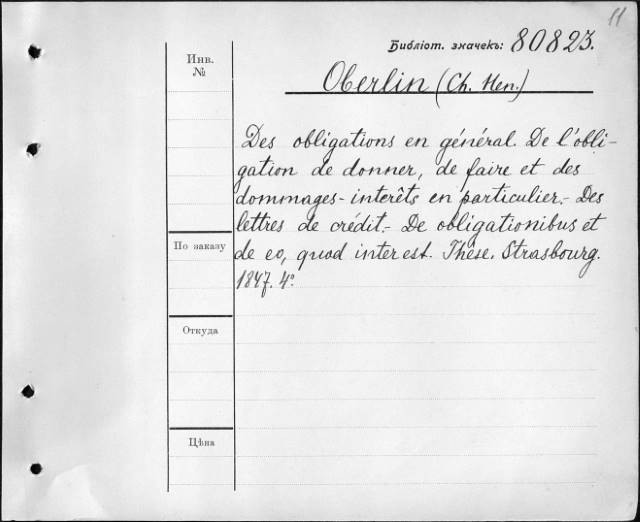 11
Библіот. значекъ: 80823.
Инв.
№
Oberlin (Ch. Hen.)
Des obligations en général. De l'obli-
gation de donner, de faire et des
dommages-interêts en particulier.- Des
lettres de crédit.- De obligationibus et
По заказу
de eo, quod interest. Thèse. Strasbourg.
1847. 4º.
Откуда
Цѣна